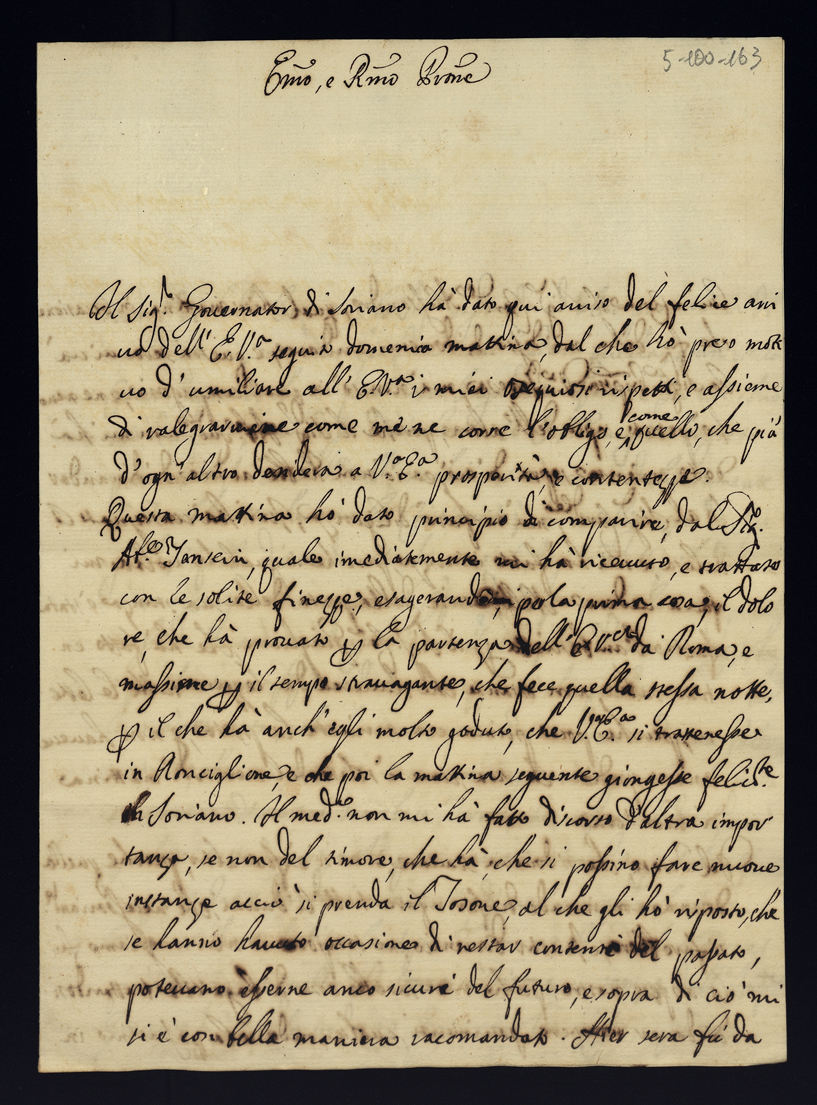 5-100-163
Emo, e Rmo Prone
Il Sigr. Governator di Soriano hà dato qui auiso del felice arri
uo dell' E.Va. seguita domenica mattina, dal che hò preso moti
uo d' umiliare all' E.Va. i miei ossequiosi rispetti, e assieme
di ralegrarmene come me ne corre l'obligo, e come quello, che più
d'ogn'altro desidera a Va. Ea. prosperità, e contentezze.
Questa mattina hò dato principio di comparire, dal Sig.
Janseni, quale imediatemente mi hà riceuuto, e trattato
con le solite finezze, esagerando, per la prima cosa, il dolo
re, che hà prouato per la partenza dell' E.V. da Roma, e
massime per il tempo strauagante, che fece quella stessa notte,
per il che hà anch' egli molto goduto, che V.E. si trattenesse
in Ronciglione, e che poi la mattina seguente giongesse felicte.
à Soriano. Il medo. non mi hà fatto discorso d'altra impor
tanza, se non del timore, che hà, che si possino fare nuoue
instanze acciò si prenda il Tosone, al che gli hò risposto, che
se hanno hauuto occasione di restar contenti del passato,
poteuano esserne anco sicuri del futuro, e sopra di ciò mi
si è con bella maniera racomandato. Hier sera fù da